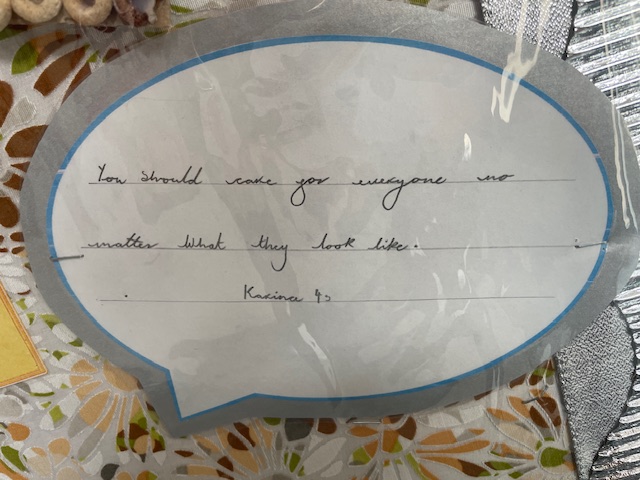 You should care for everyone no
matter what they look like.
Karina 4s